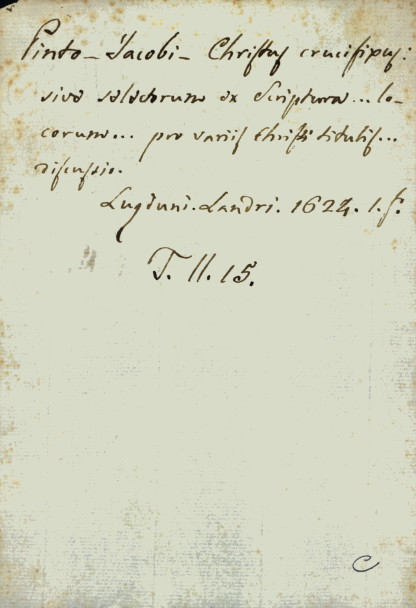 Pinto - Jacobi - Christus crucifixus:
sive selectorum ex Scriptura... lo-
corum... pro variis Christi titulis...
discussio.
Lugduni. Landri. 1624. 1. f.
T. II. 15.
C